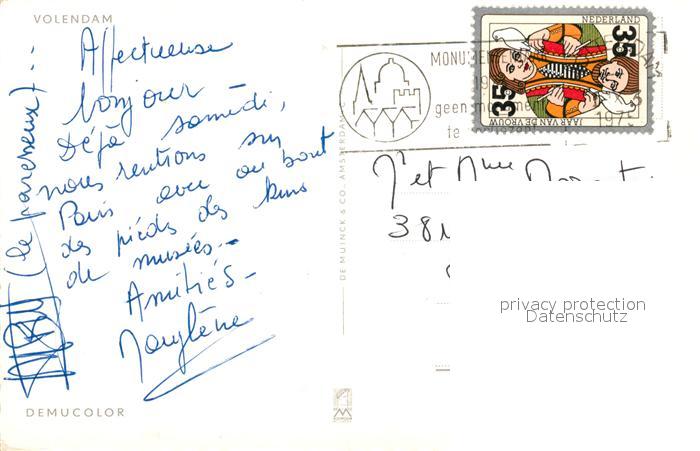 VOLENDAM
Affectueuse
bonjour
Déjà samedi,
nous rentrons sur
Paris avec au bout
des pieds des kms
de musées...
Amitiés -
(le paresseux) !...
DEMUCOLOR
DE MUINCK & CO. AMSTERDAM
NEDERLAND
35
35
JAAR VAN DE VROUW
1975
MONU
geen
te
et Mme
38
privacy protection
Datenschutz